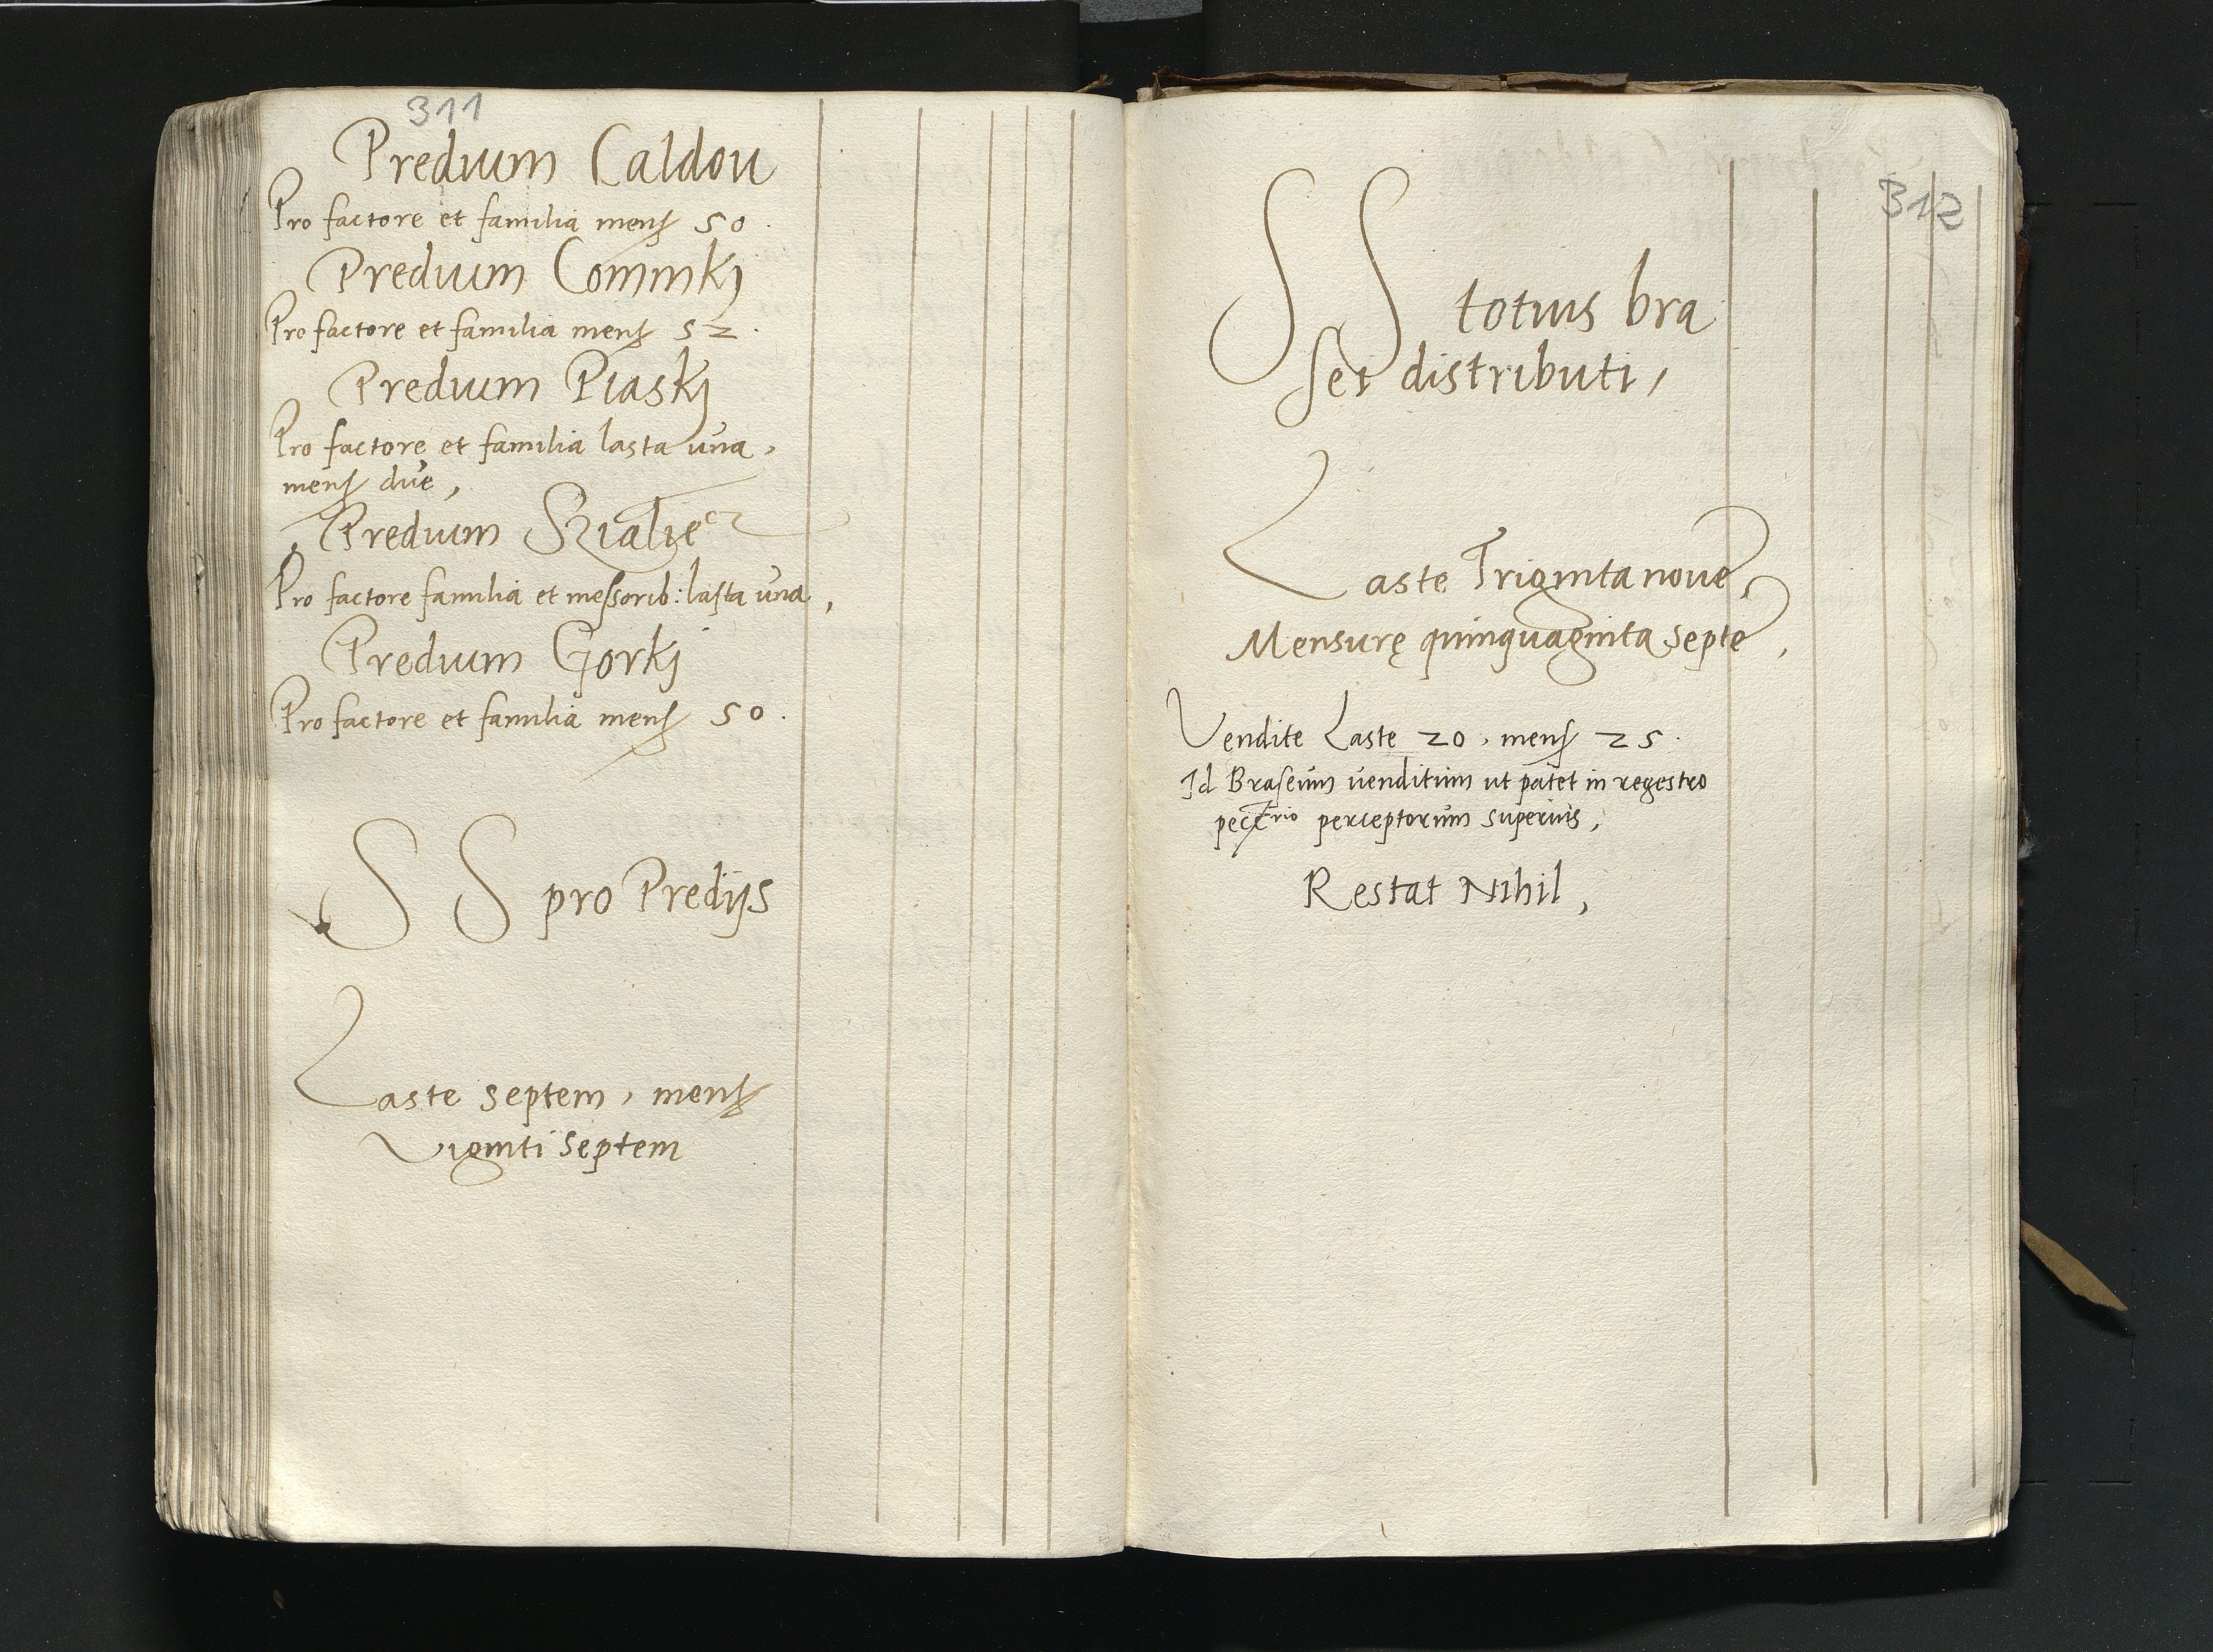 311
Predium Caldou
Pro factore et familia menſ 50.
Predium Cominkj
Pro factore et familia menſ 52.
Predium Piaskj
Pro factore et familia lasta una,
menſ due,
Predium
Pro factore familia et meſsorib: laſta una,
Predium Gorkj
Pro factore et familia menſ 50.
SS pro Predijs
Laste septem, menſ
Viginti septem
312
SS totius bra
ſei distributi,
Laste Triginta nouē,
Mensurę quinquaginta septē,
Vendite Laste 20, menſ 25.
Id Braſeum venditum ut patet in regestro
perceptorum superius,
Restat Nihil,